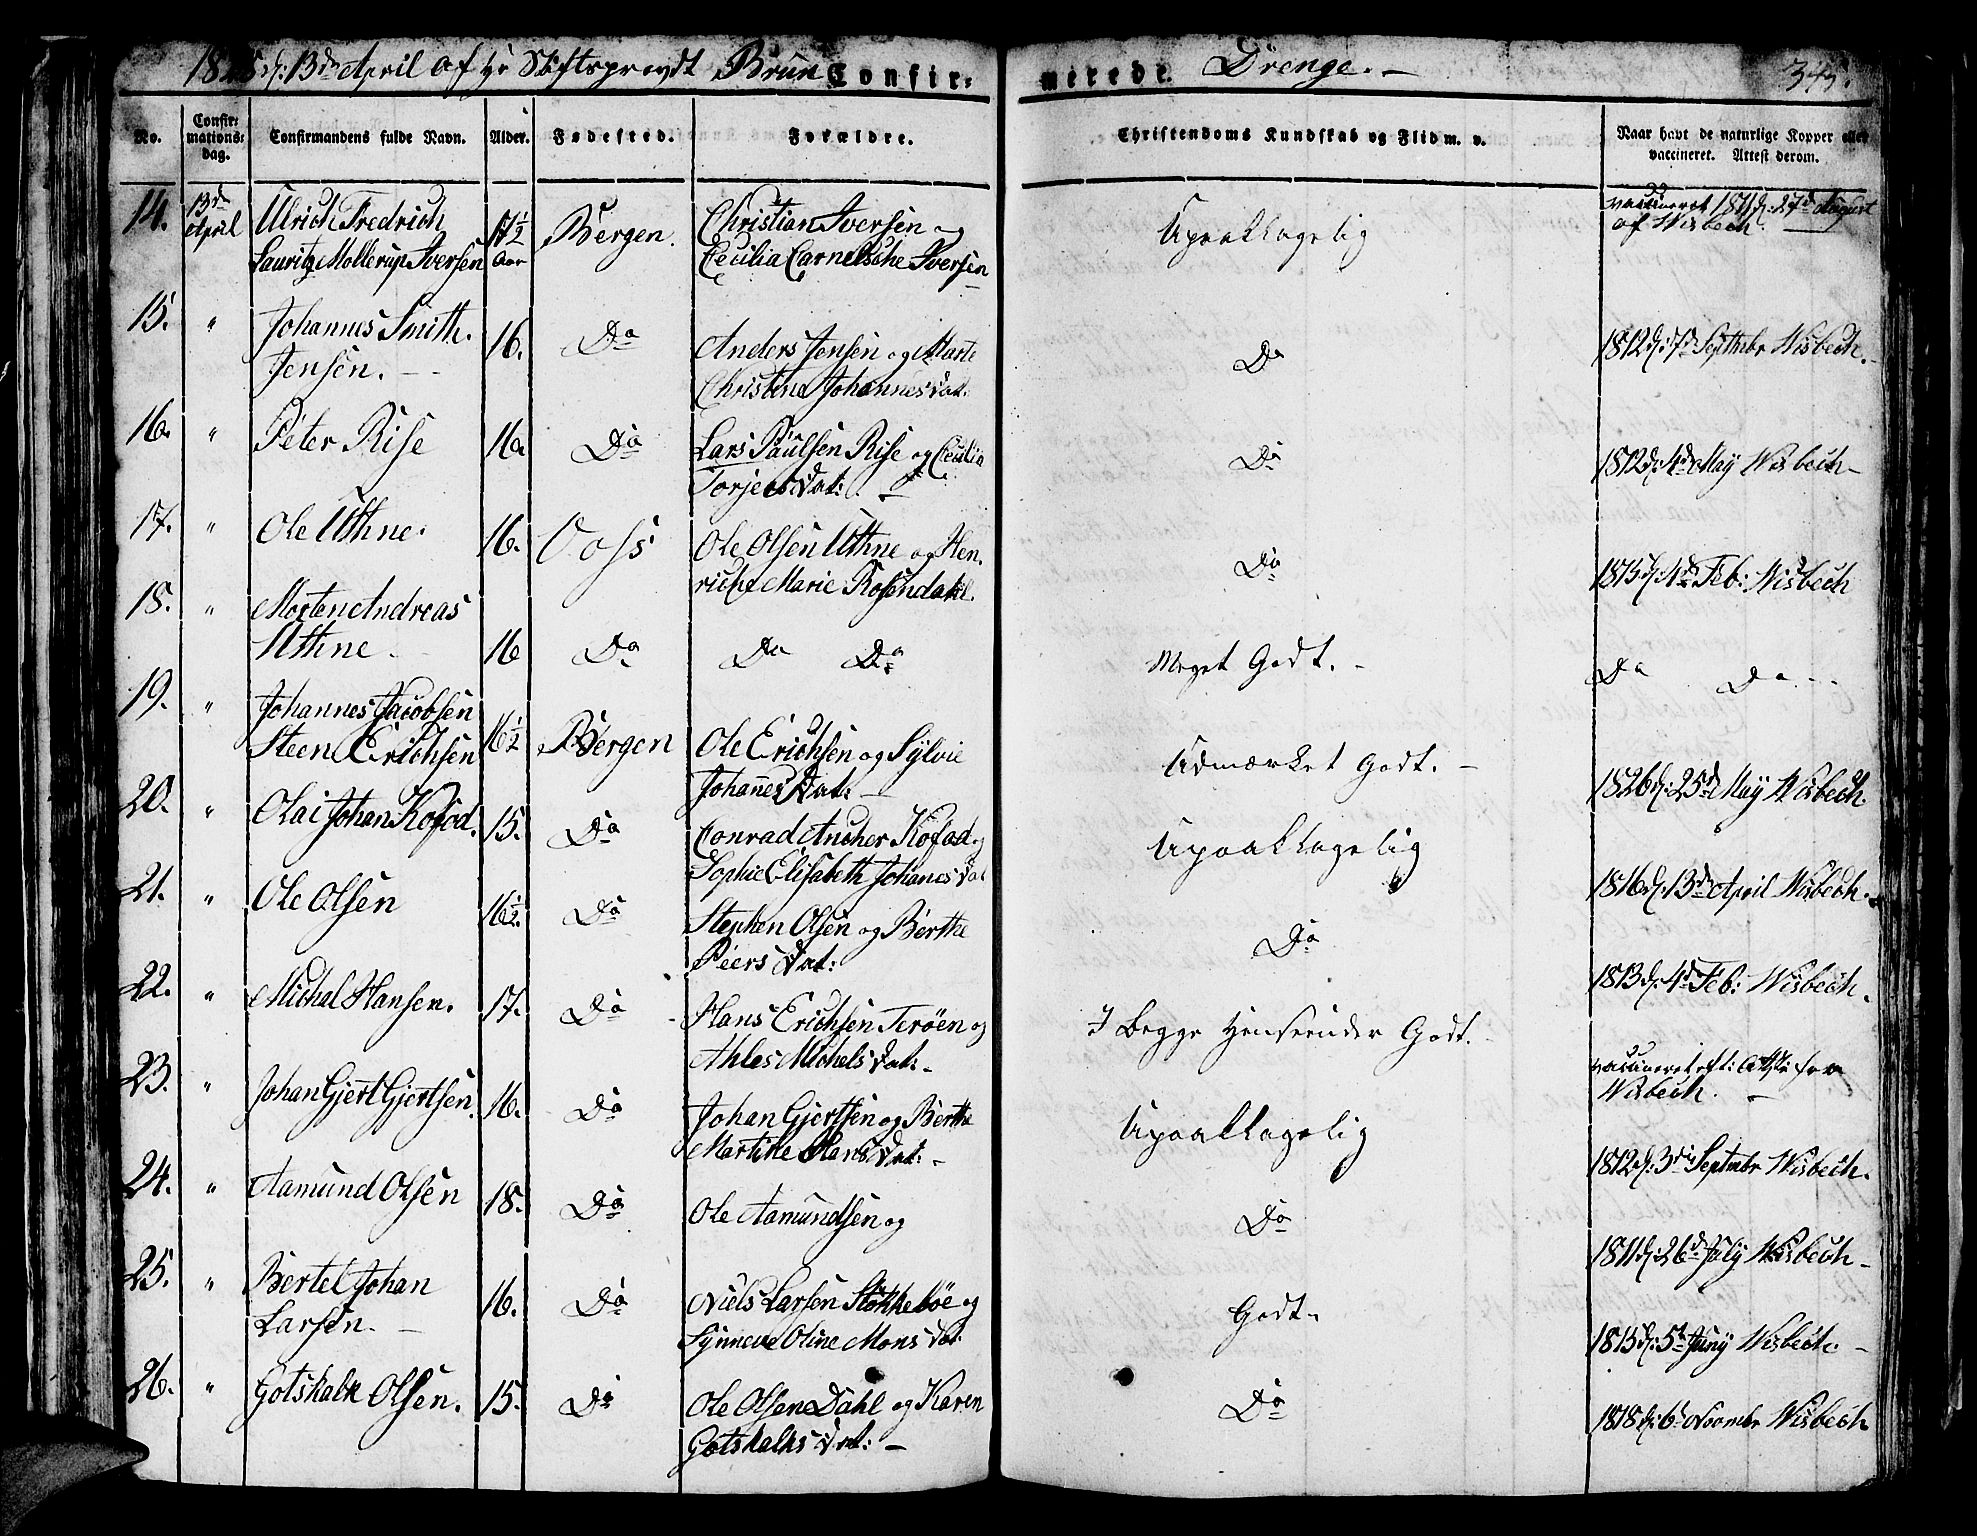 1828 d: 13de April af Hr Stiftsprovst Brun Confir-
merede. Drenge. —
343.
No.
Confir-
mations-
dag.
Confirmandens fulde Navn.
Alder.
Fødested.
Forældre.
Christendoms Kundskab og Flid m. v.
Naar havt de naturlige Kopper eller
vaccineret. Attest derom.
14. 13de April Ulrich Fredrich
Lauritz Mollerup Iversen 17½ Aar Bergen. Christian Iversen og
Cecilia Carnelsche Iversen
Upaaklagelig
vaccineret 1811 d: 27de August
af Wisbech.
15. " Johannes Smith
Jensen. — 16. Do Anders Jensen og Marte
Christine Johannesdat:
Do
1812 d: 7de Septmbr Wisbech.
16. " Peter Rise 16. Do Lars Paulsen Rise og Cecilia
Torjersdat: —
Do
1812 d: 4de May Wisbech —
17. " Ole Uthne. 16. Voss Ole Olsen Uthne og Hen-
riche Marie Rosendahl.
Do
1815 d: 4de Feb: Wisbech
18. " Morten Andreas
Uthne 16 Do Do Do
Meget Godt. —
Do Do —
19. " Johannes Jacobsen
Steen Erichsen 16½ Bergen Ole Erichsen og Sylvie
Johannes Dat: —
Udmærket Godt. —
1826 d: 25de May Wisbech.
20. " Olai Johan Kofod. 15. Do Conrad Ancher Kofod og
Sophie Elisabeth Johanesdat
Upaaklagelig
1816 d: 13de April Wisbech.
21. " Ole Olsen 16½. Do Stephen Olsen og Berthe
Peersdat:
Do
1813 d: 4de Feb: Wisbech.
22. " Michal Hansen. 17. Do Hans Erichsen Terøen og
Ahles Michelsdat: —
I Begge Henseender Godt.
vaccineret eft: Attst: fra
Wisbech. —
23. " Johan Gjert Gjertsen. 16. Do Johan Gjertsen og Berthe
Martine Hansdat: —
Upaaklagelig
1812 d: 3die Septmbr Wisbech.
24. " Aamund Olsen 18. Do Ole Aamundsen og
Do
1811 d: 26de July Wisbech —
25. " Bertel Johan
Larsen. — 16. Do Niels Larsen Stokkebøe og
Synneve Oline Monsdat.
Godt. —
1815 d: 5te Juny Wisbech. —
26. " Gotskalk Olsen. 15. Do Ole Olsen Dahl og Karen
Gotskalksdat: —
Do
1818 d: 6te Novmbr Wisbech